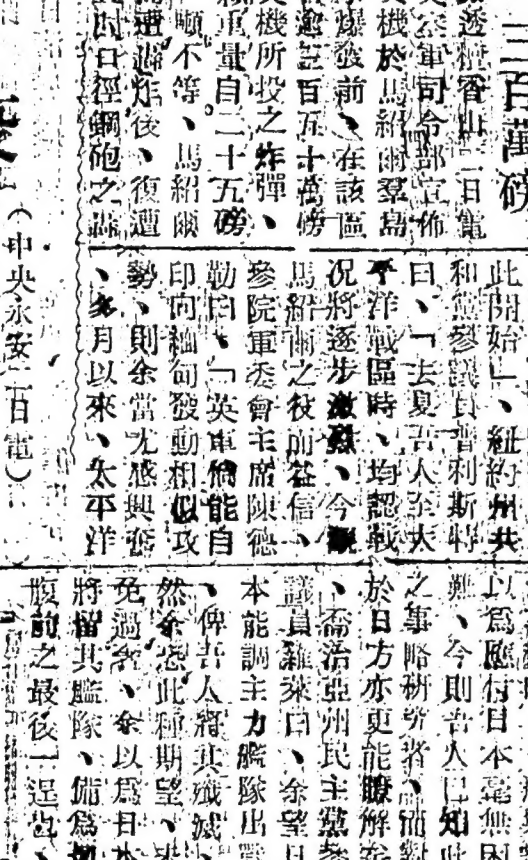 三百萬磅
透檀香山二日電
空軍司令部宣佈
機於馬紹爾羣島
爆發前、在該區
逾三百五十萬磅
機所投之炸彈、
重量自二十五磅
噸不等、馬紹爾
遭過炸後、復遭
時口徑鋼砲之轟
（中央永安二日電）
此開始」、紐約州共
和黨參議員普利斯特
曰、「去夏吾人至太
平洋戰區時、均認戰
況將逐步激烈、今觀
馬紹爾之役而益信、
參院軍委會主席陳德
勒曰、「英軍倘能自
印向緬甸發動相似攻
勢、則余當尤感興奮
、多月以來、太平洋
以爲應付日本毫無困
難、今則吾人已知此
之事略研究者、而對
於日方亦更能瞭解
、喬治亞州民主黨參
議員羅萊曰、余望日
本能調主力艦隊出戰
、俾吾人將其殲滅、
然余恐此種期望、
免過奢、余以爲日本
將留其艦隊、備爲
腹前之最後一逞也、